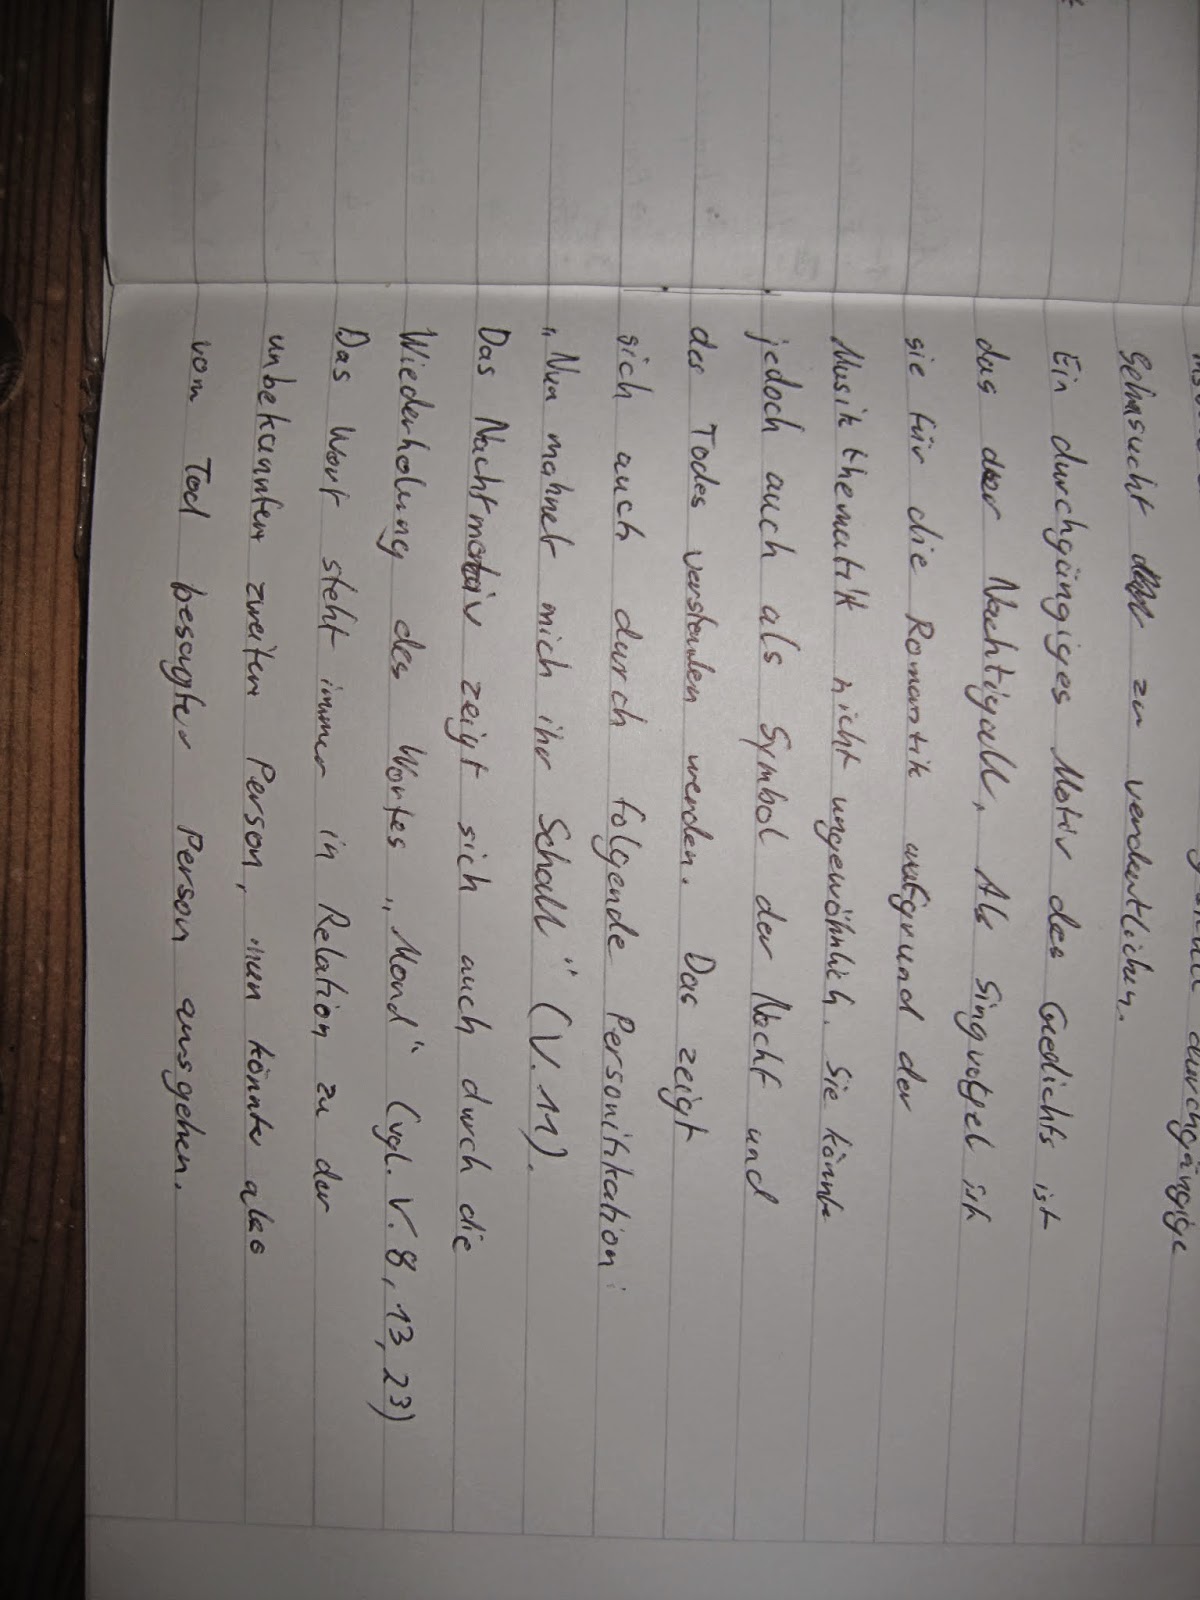 durchgängige
Sehnsucht zu verdeutlichen.
Ein durchgängiges Motiv des Gedichts ist
das der Nachtigall. Als Singvogel ist
sie für die Romantik aufgrund der
Musikthematik nicht ungewöhnlich. Sie könnte
jedoch auch als Symbol der Nacht und
des Todes verstanden werden. Das zeigt
sich auch durch folgende Personifikation:
„Nun mahnet mich ihr Schall" (V. 11).
Das Nachtmotiv zeigt sich auch durch die
Wiederholung des Wortes „Mond" (vgl. V. 8, 13, 23)
Das Wort steht immer in Relation zu der
unbekannten zweiten Person, man könnte also
vom Tod besagter Person ausgehen.